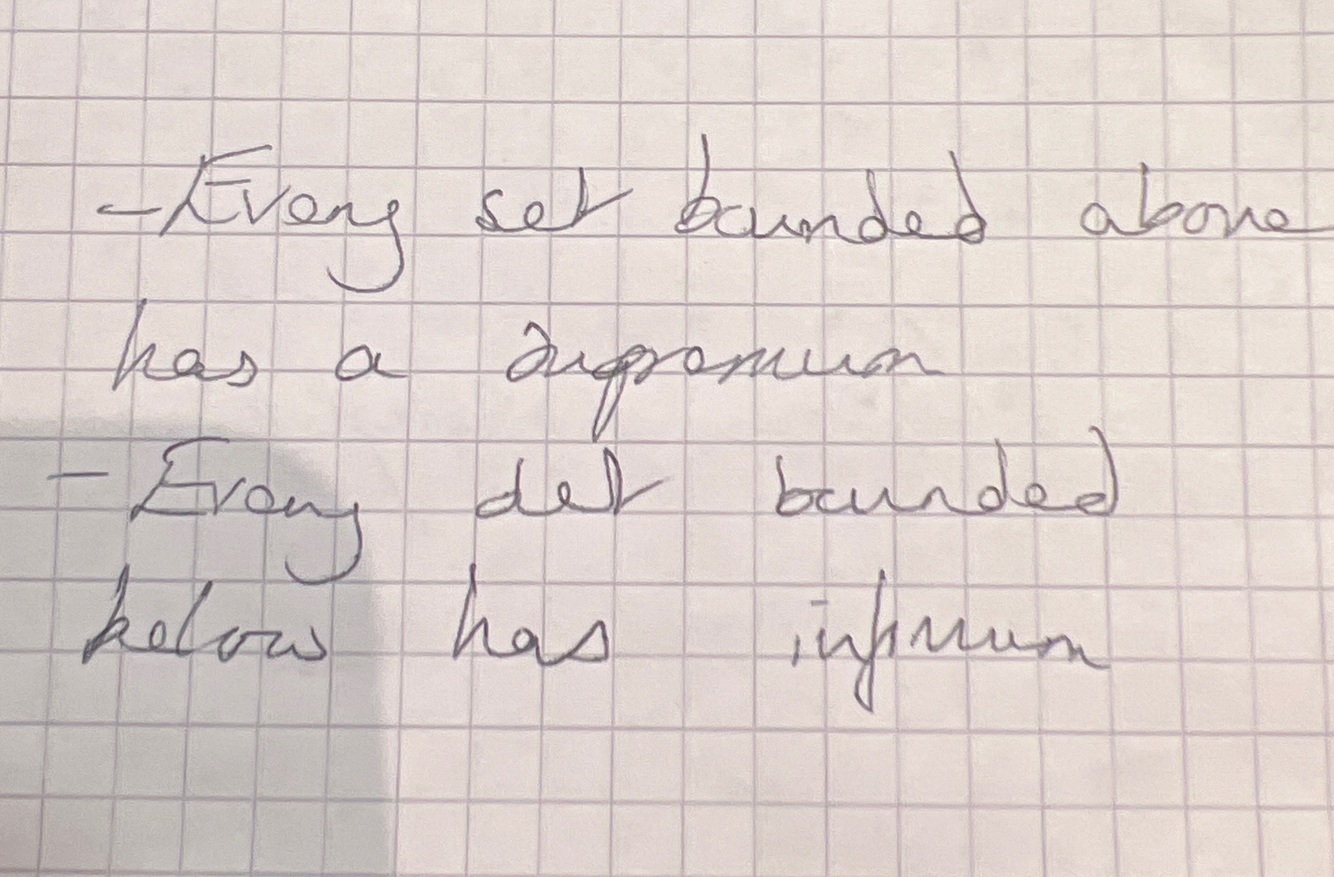 - Every set bounded above
has a supremum
- Every set bounded
below has infimum